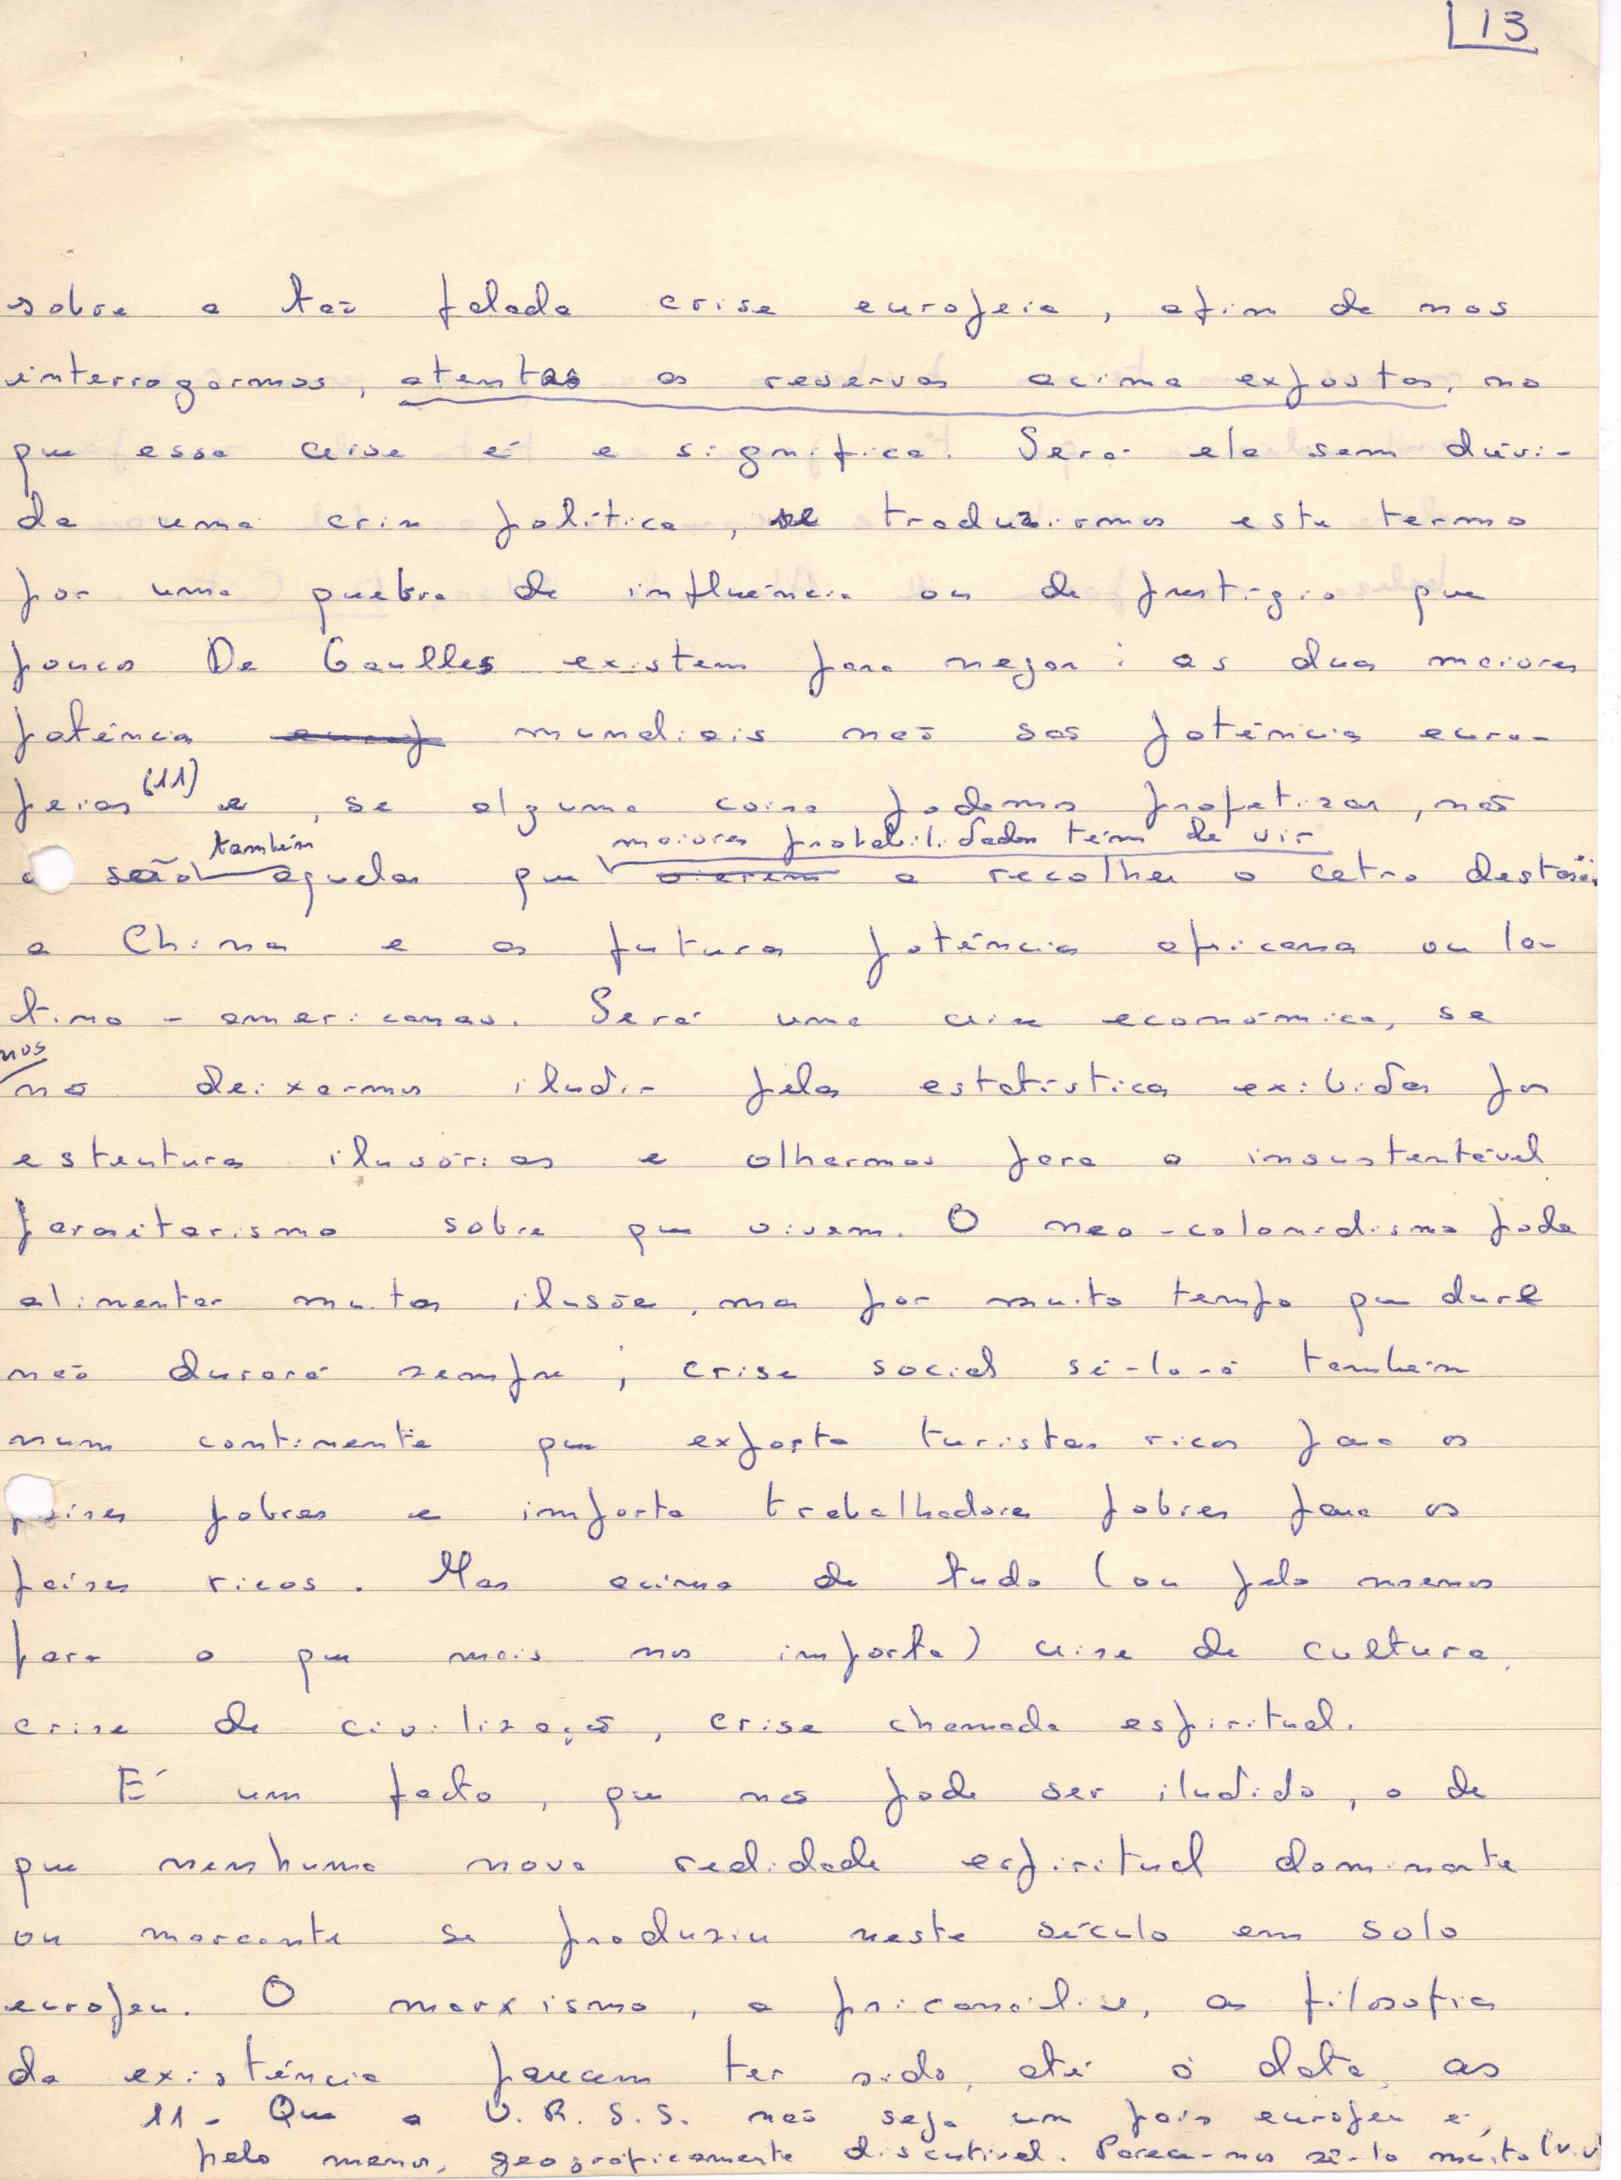 13
sobre a tão falada crise europeia, afim de nos
interrogarmos, atentas as reservas acima expostas, no
que essa crise é e significa. Será ela sem dúvi-
da uma crise política, se traduzirmos este termo
por uma quebra de influência ou de prestígio que
poucos De Gaulles existem para negar: as duas maiores
potências europ mundiais não são potências euro-
peias (11) e, se alguma coisa podemos profetizar, não
também maiores probabilidades têm de vir
serão aquelas que vierem a recolher o cetro destas:
a China e as futuras potências africanas ou la-
tino-americanas. Será uma crise económica, se
nos
não deixarmos iludir pelas estatísticas exibidas por
estruturas ilusórias e olharmos para o insustentável
parasitarismo sobre que vivem. O neo-colonialismo pode
alimentar muitas ilusões, mas por muito tempo que dure
não durará sempre; crise social sê-lo-á também
num continente que exporta turistas ricos para os
países pobres e importa trabalhadores pobres para os
países ricos. Mas acima de tudo (ou pelo menos
para o que mais nos importa) crise de cultura,
crise de civilização, crise chamada espiritual.
É um facto, que não pode ser iludido, o de
que nenhuma nova realidade espiritual dominante
ou marcante se produziu neste século em solo
europeu. O marxismo, a psicanálise, as filosofias
da existência parecem ter sido, até à data, as
11 - Que a U.R.S.S. não seja um país europeu é,
pelo menos, geograficamente discutível. Parece-nos sê-lo muito (v.v